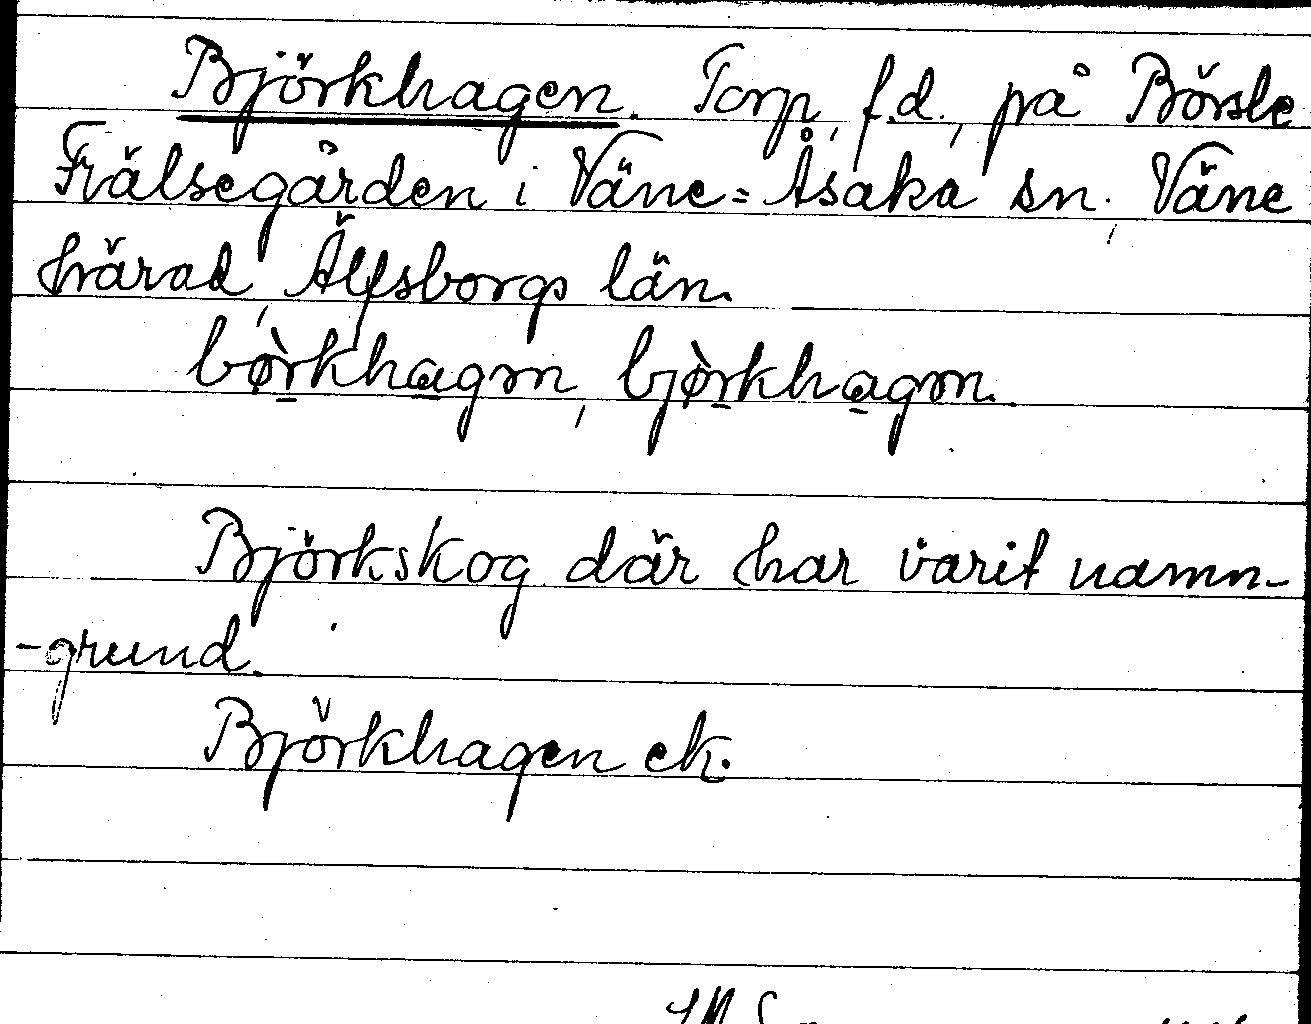 Björkhagen. Torp, f.d., på Börsle
Frälsegården i Väne=Åsaka sn. Väne
härad, Älfsborgs län.
bø̀rkhagen, bjø̀rkhagen.
Björkskog där har varit namn-
-grund.
Björkhagen ek.